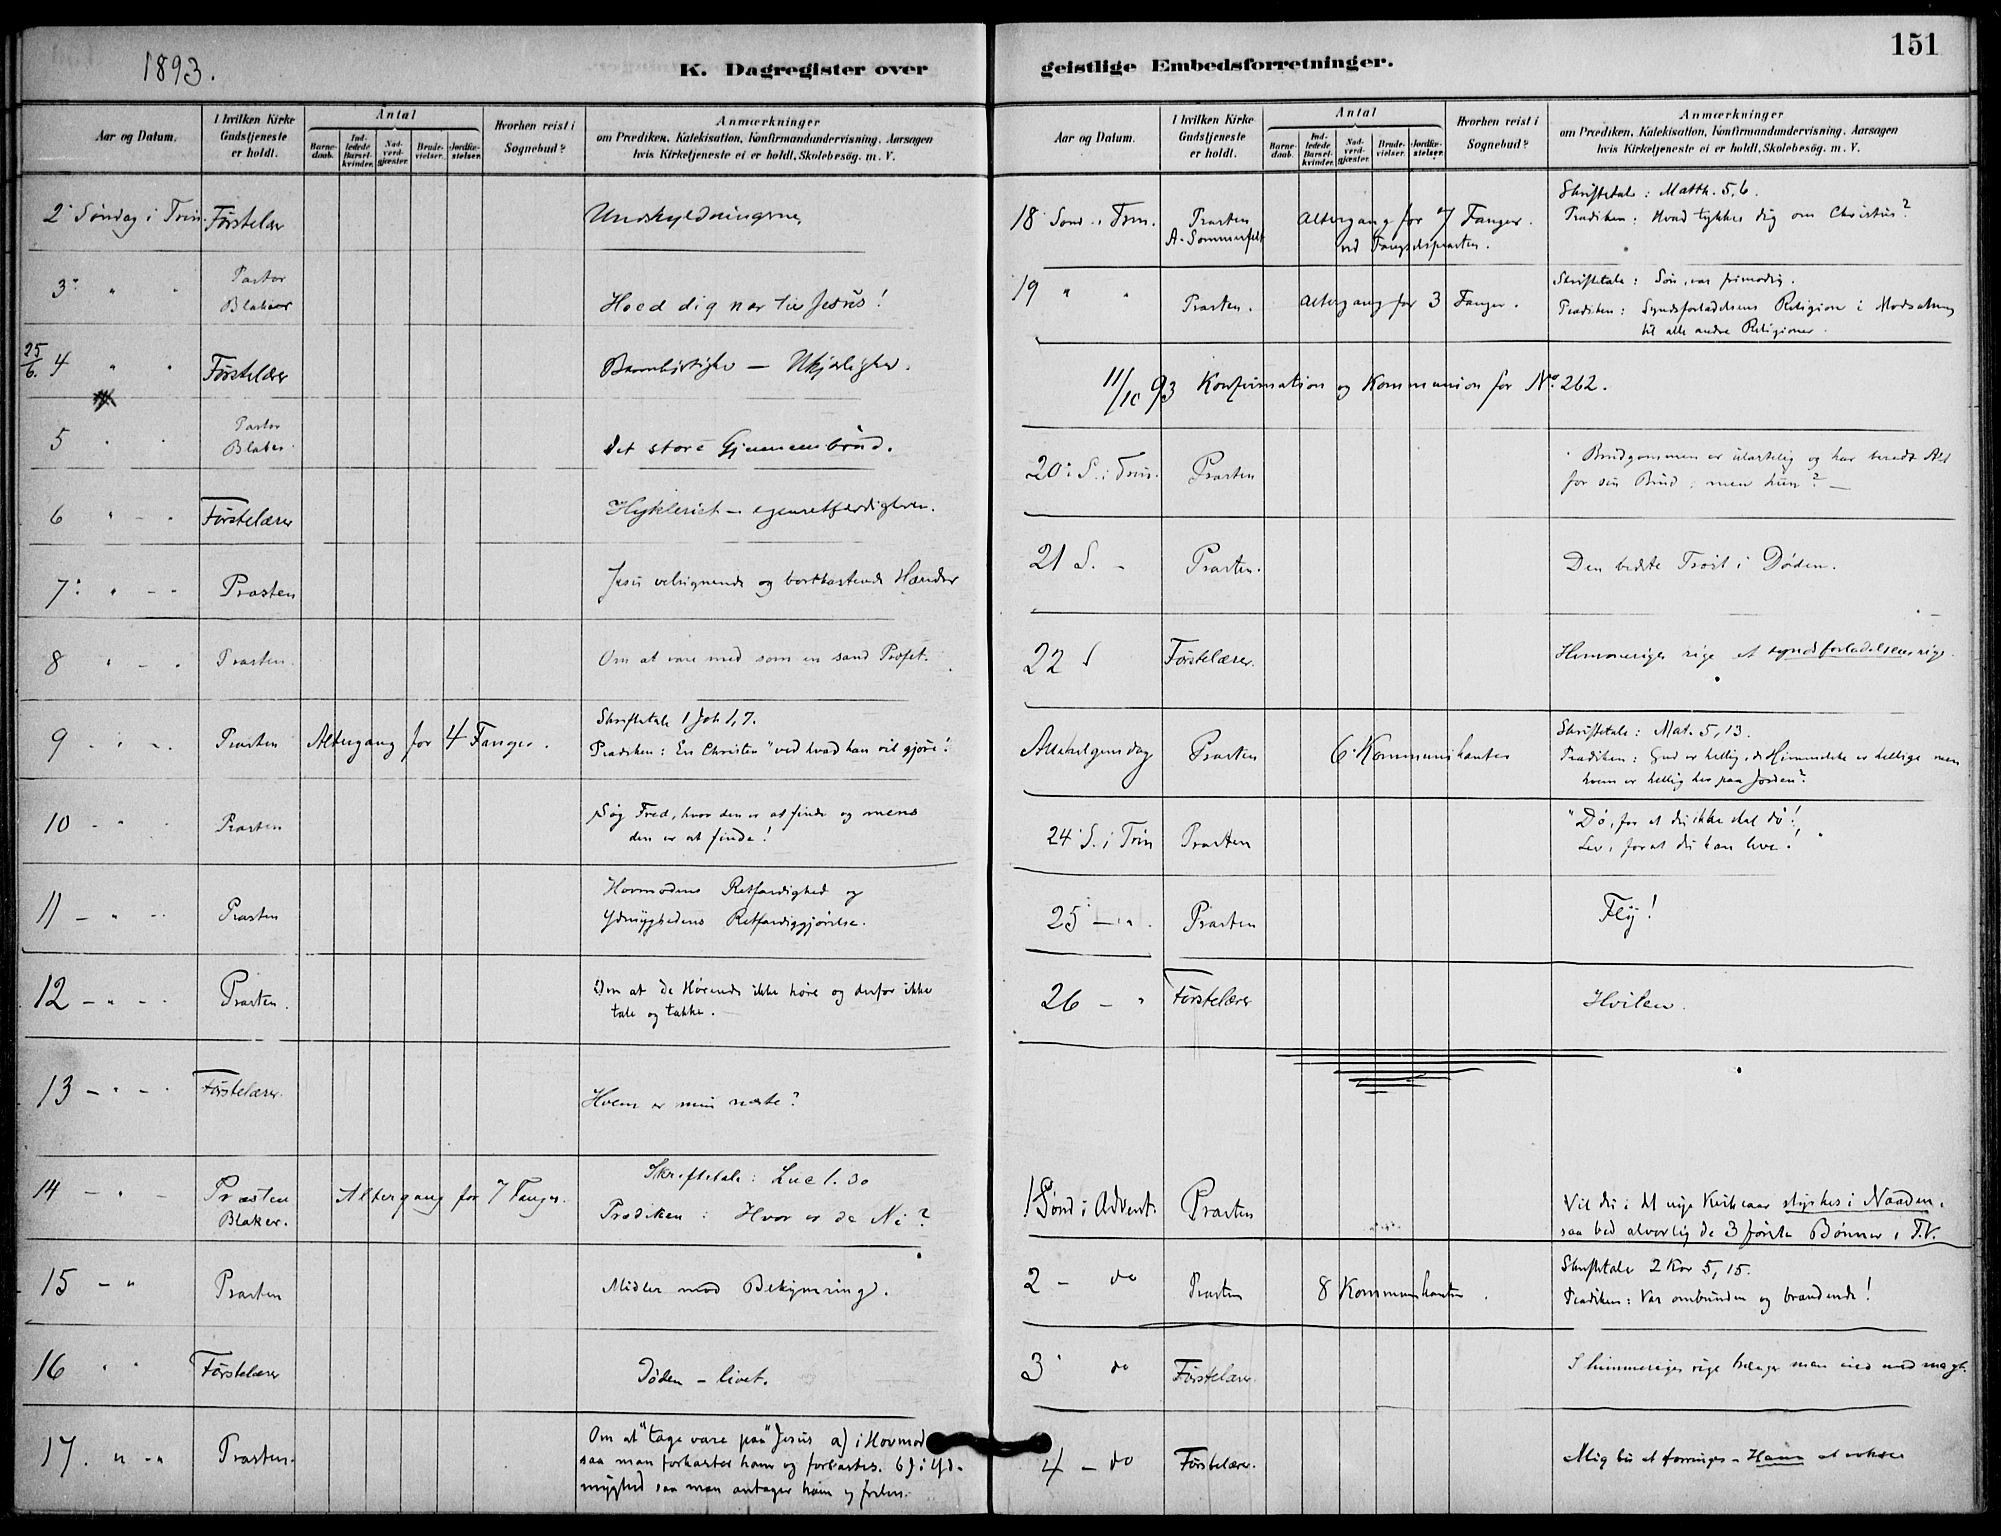 1893.
K. Dagregister over
Aar og Datum.
I hvilken Kirke Gudstjeneste er holdt.
Antal
Barnedaab.
Indledede Barselkvinder.
Nadverdgjæster.
Brudevielser.
Jordfæstelser.
Hvorhen reist i Sognebud?
Anmærkninger
om Prædiken, Katekisation, Konfirmandundervisning, Aarsagen
hvis Kirketjeneste ei er holdt, Skolebesøg. m. V.
2' Søndag i Trin. Førstelær Undskyldningerne
3' " " Pastor Blaker Hold dig nær til Jesus!
25/6. 4 " " Førstelærer Barmhjertighe — Ukjærlighe.
5 " " Pastor Blaker Det store Gjennembrud.
6 " - " Førstelærer Hykleriet - egenretfærdigheden.
7' " - " Præsten Jesu velsignende og bortkastende Hænder
8 " - " Præsten. Om at være med som en sand Profet.
9 " " Præsten Altergang for 4 Fanger. Skriftetale 1 Joh 1,7.
Prædiken: En Christen "ved hvad han vil gjøre!
10 - " Præsten Søg Fred, hvor den er at finde og mens
den er at finde!
11 - " - Præsten Hovmodens Retfærdighed og
Ydmyghedens Retfærdiggjørelse.
12 - " - Præsten. Om at de Hørende ikke høre og derfor ikke
tale og takke.
13 - " - Førstelærer. Hvem er min næste?
14 - " - Præsten Blaker. Altergang for 7 Fanger. Skriftetale: Luc 1.30
Prædiken: Hvor er de Ni?
15 - " Præsten Midler mod Bekymring.
16 " " Førstelærer Døden - livet.
17. " - " Præsten. Om at "tage vare paa" Jesus a) i Hovmod
saa man forkaster ham og forkastes. b) i Yd-
myghed saa man antager ham og frelses.
151
geistlige Embedsforretninger.
Aar og Datum.
I hvilken Kirke Gudstjeneste er holdt.
Antal
Barnedaab.
Indledede Barselkvinder.
Nadverdgjæster.
Brudevielser.
Jordfæstelser.
Hvorhen reist i Sognebud?
Anmærkninger
om Prædiken, Katekisation, Konfirmandundervisning, Aarsagen
hvis Kirketjeneste ei er holdt, Skolebesøg. m. V.
18 Sønd. i Trin. Præsten A. Sommerfelt Altergang for 7 Fanger. ved Fængselspræsten. Skriftetale: Matth. 5,6.
Prædiken: Hvad tykkes dig om Christus?
19 " " Præsten. Altergang for 3 Fanger. Skriftetale: Søn, vær frimodig.
Prædiken: Syndsforladelsens Religion i Modsætning
til alle andre Religioner.
11/10 93 Konfirmation og Kommunion for No. 262.
20' S. i Trin. Præsten Brudgommen er ulastelig og har beredt Alt
for sin Brud; men hun? —
21 S. - Præsten. Den bedste Trøst i Døden.
22 S Førstelærer. Himmeriges rige et syndsforladelsens rige.
Allehelgensdag Præsten 6 Kommunikanter Skriftetale: Mat. 5,13.
Prædiken: Gud er hellig, de Himmelske er hellige men
hvem er hellig her paa Jorden?
24' S. i Trin Præsten "Dø, for at du ikke skal dø!
Lev, for at du kan leve!"
25' - " . Præsten Fly!
26 - " Førstelærer Hvilen.
1 Sønd i Advent. Præsten Vil du i det nye Kirkeaar styrkes i Naaden,
saa bed alvorlig de 3 første Bønner i F.V.
2 - do Præsten 8 Kommunikanter. Skriftetale 2 Kor 5,15.
Prædiken: Vær ombunden og brændende!
3' do Førstelærer. I himmeriges rige trænger man ind med magt.
4 - do Førstelærer. Mig bør at forringes - Ham at vokse